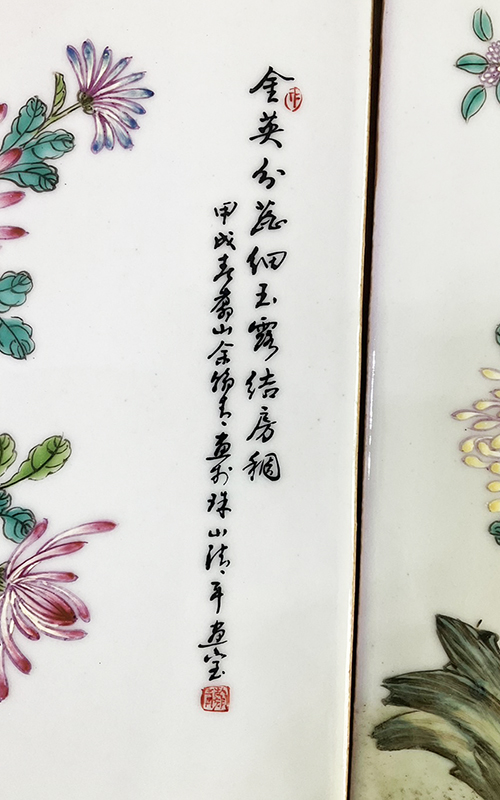 金英分蕊细玉露结房稠
甲戌春山余翰青画於珠山清平画室